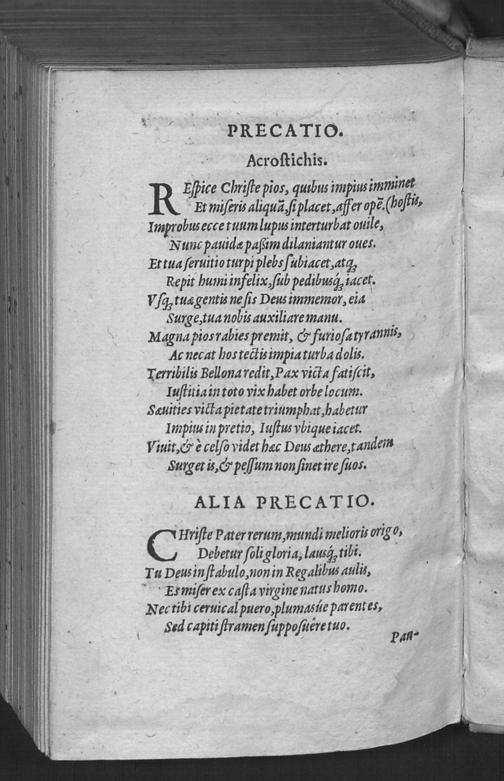 PRECATIO.
Acrostichis.
REspice Christe pios, quibus impius imminet
Et miseris aliquã, si placet, affer opẽ. (hostis,
Improbus ecce tuum lupus interturbat ouile,
Nunc pauidæ paßim dilaniantur oues.
Et tua seruitio turpi plebs subiacet, atq;
Repit humi infelix, sub pedibusq; iacet.
Vsq; tuæ gentis ne sis Deus immemor, eia
Surge, tua nobis auxiliare manu.
Magna pios rabies premit, & furiosa tyrannis,
Ac necat hos tectis impia turba dolis.
Terribilis Bellona redit, Pax victa fatiscit,
Iustitia in toto vix habet orbe locum.
Sæuities victa pietate triumphat, habetur
Impius in pretio, Iustus vbique iacet.
Viuit, & è celso videt hæc Deus æthere, tandem
Surget is, & pessum non sinet ire suos.
ALIA PRECATIO.
CHriste Pater rerum, mundi melioris origo,
Debetur soli gloria, lausq; tibi.
Tu Deus in stabulo, non in Regalibus aulis,
Es miser ex casta virgine natus homo.
Nec tibi ceruical puero, plumasúe parentes,
Sed capiti stramen supposuêre tuo.
Pan-